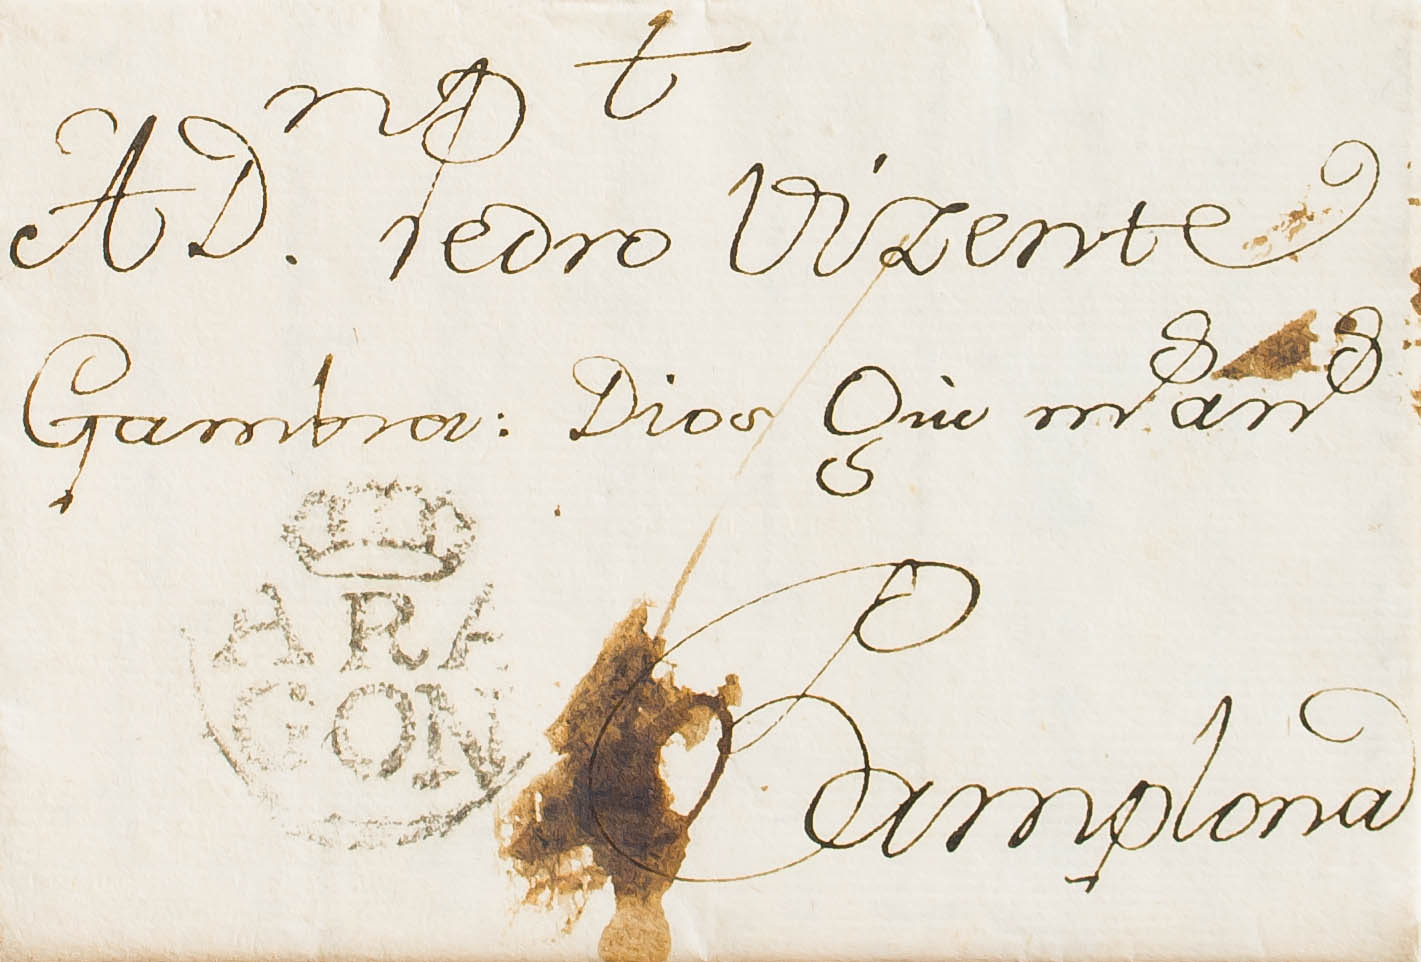 A Dn. Pedro Vizente
Gambra: Dios Gũe ms. as.
ARA
GON
Pamplona